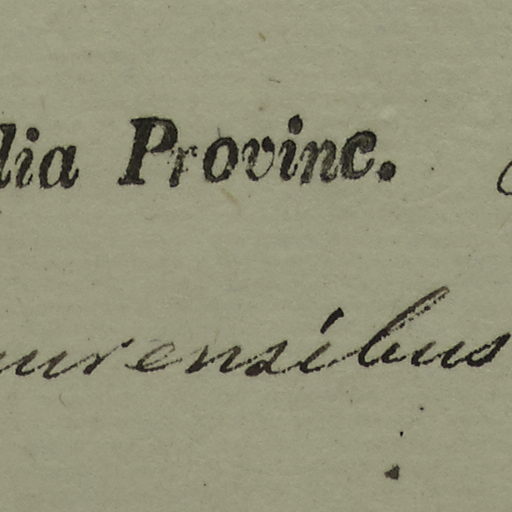 lia Provinc.
urensibus